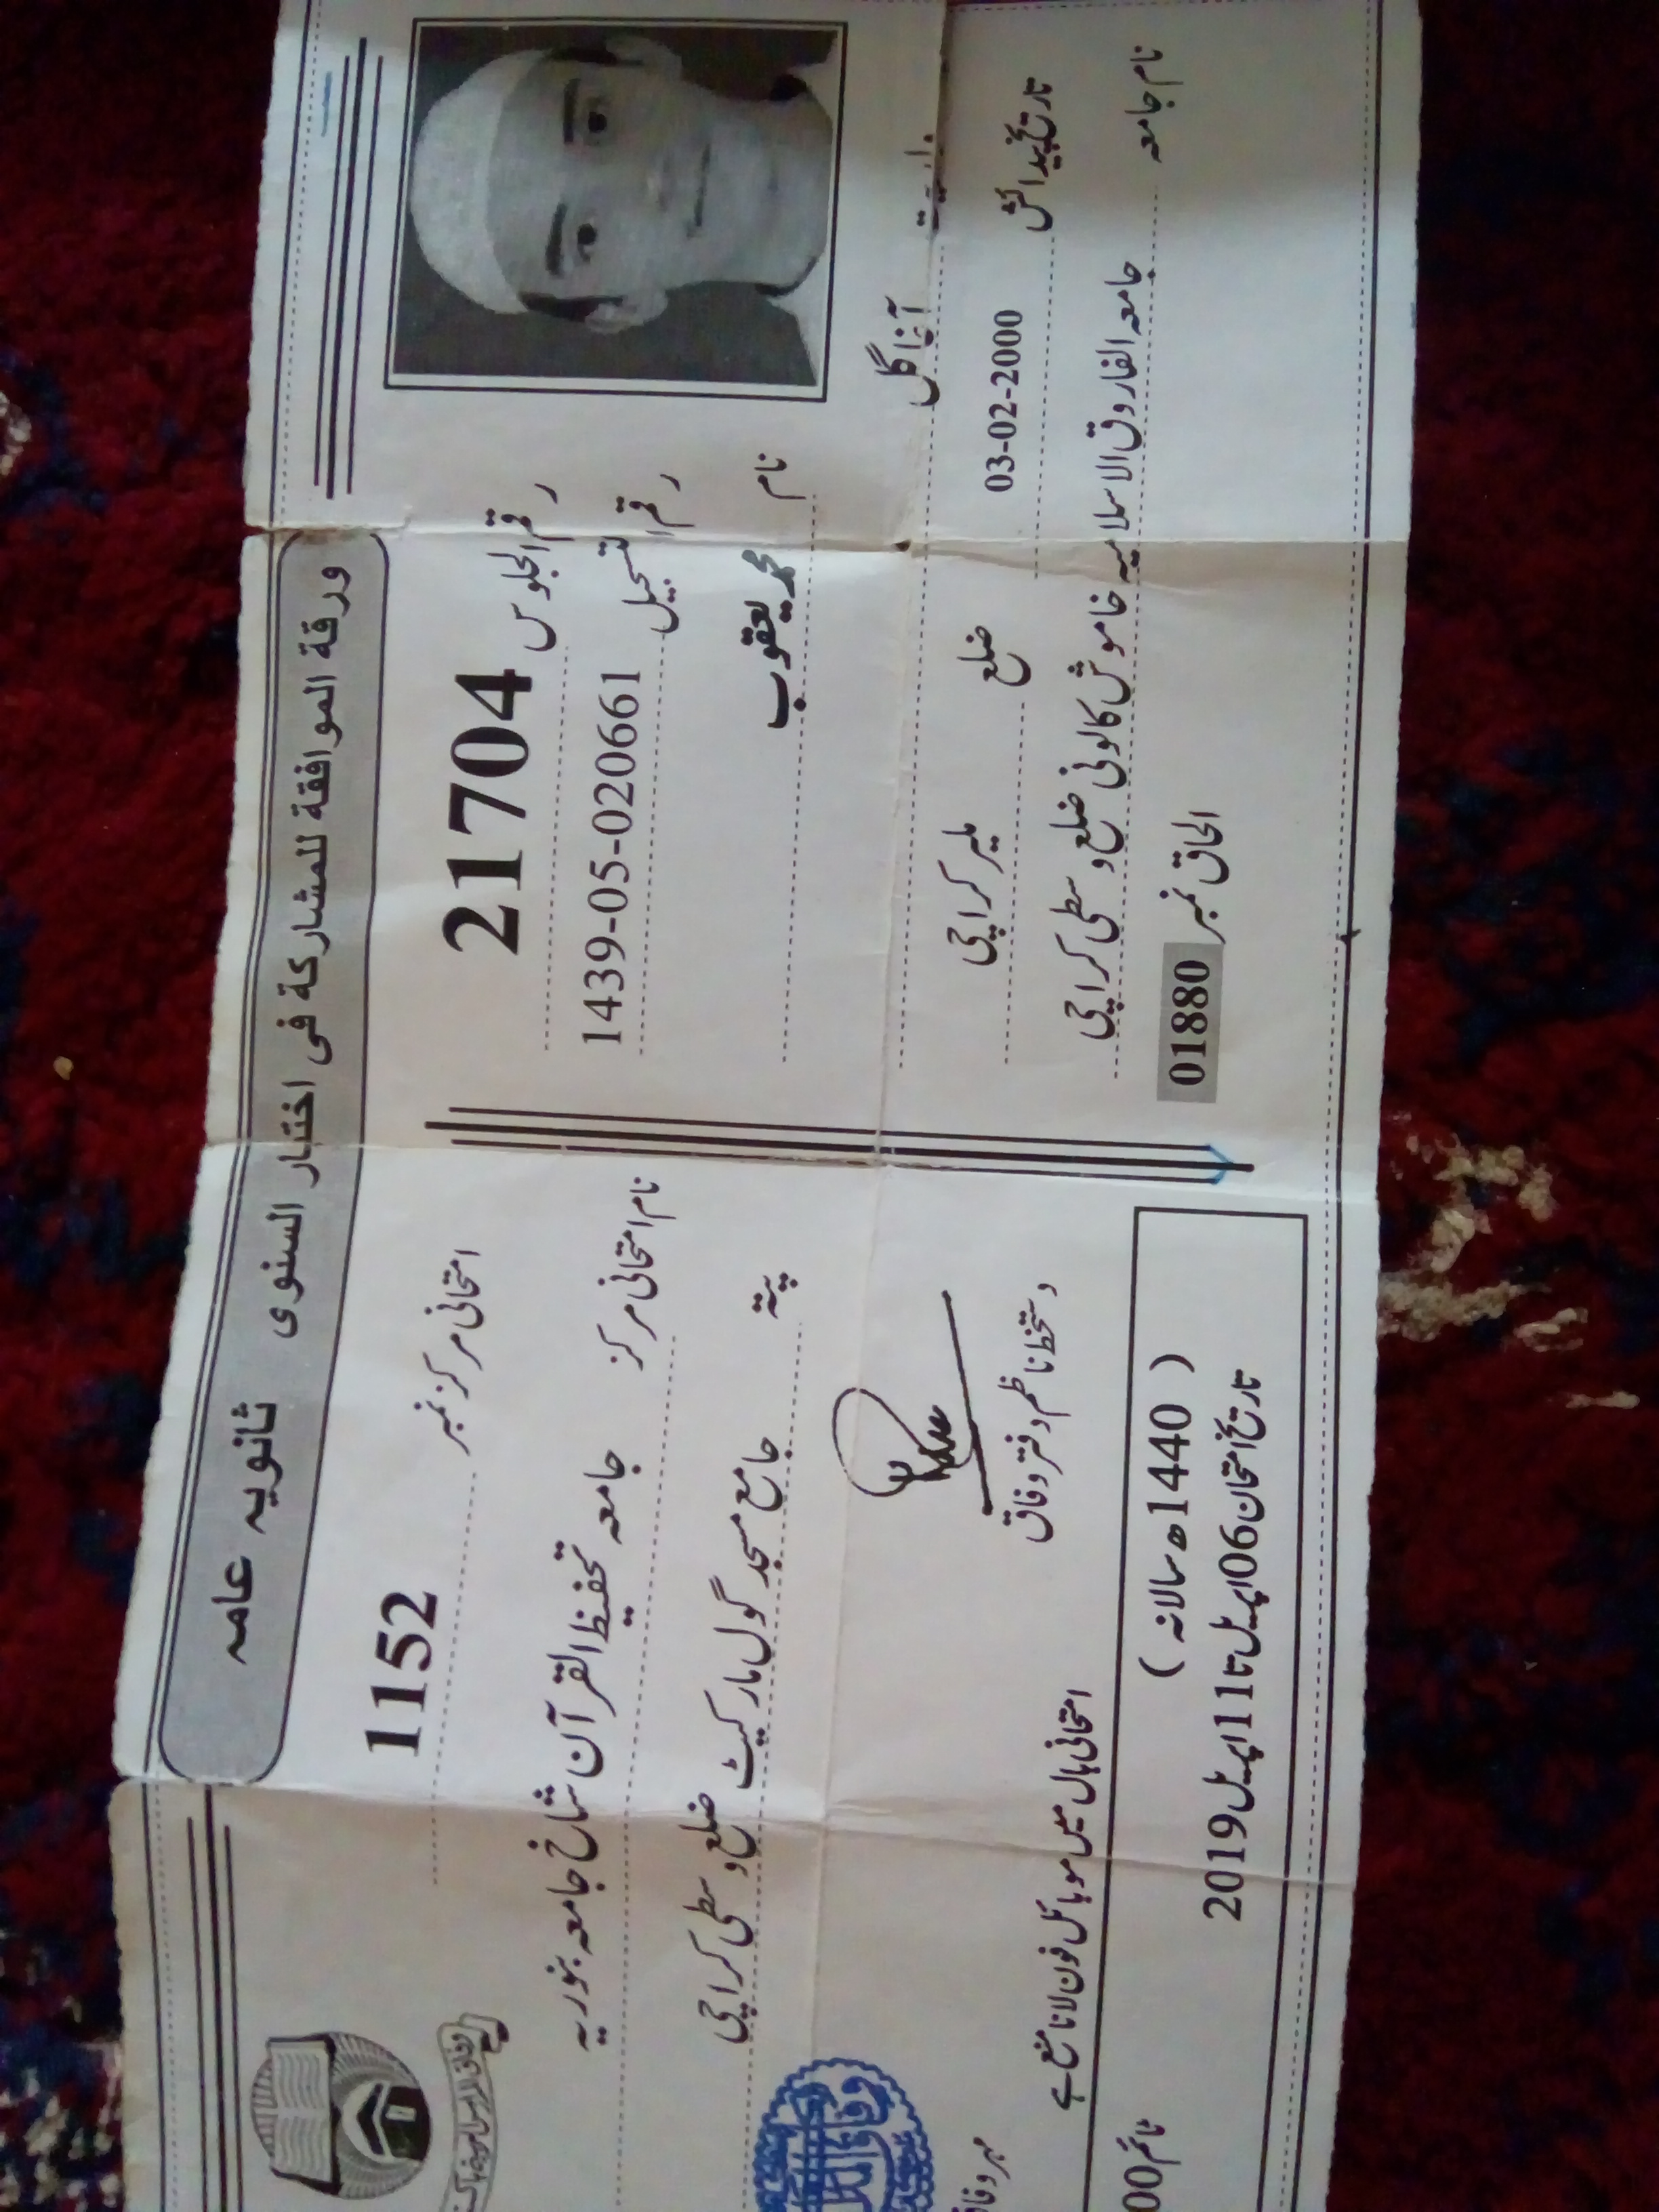 ورقة الموافقة للمشاركة فى اختبار السنوى ثانويه عامه
رقم الجلوس 21704
رقم التسجيل 1439-05-020661
نام محمد یعقوب
ولدیت آغا گل
تاریخ پیدائش 03-02-2000 ضلع ملیر کراچی
نام جامعہ جامعہ الفاروق الاسلامیہ خاموش کالونی ضلع وسطی کراچی
الحاق نمبر 01880
امتحانی مرکز نمبر 1152
نام امتحانی مرکز جامعہ تحفیظ القرآن شاخ جامعہ بنوریہ
پتہ جامع مسجد گول مارکیٹ ضلع وسطی کراچی
دستخط ناظم دفتر وفاق
مہر وفاق
امتحانی ہال میں موبائل فون لانا منع ہے
( 1440ھ سالانہ )
تاریخ امتحان 06اپریل تا 11اپریل 2019
ٹائم